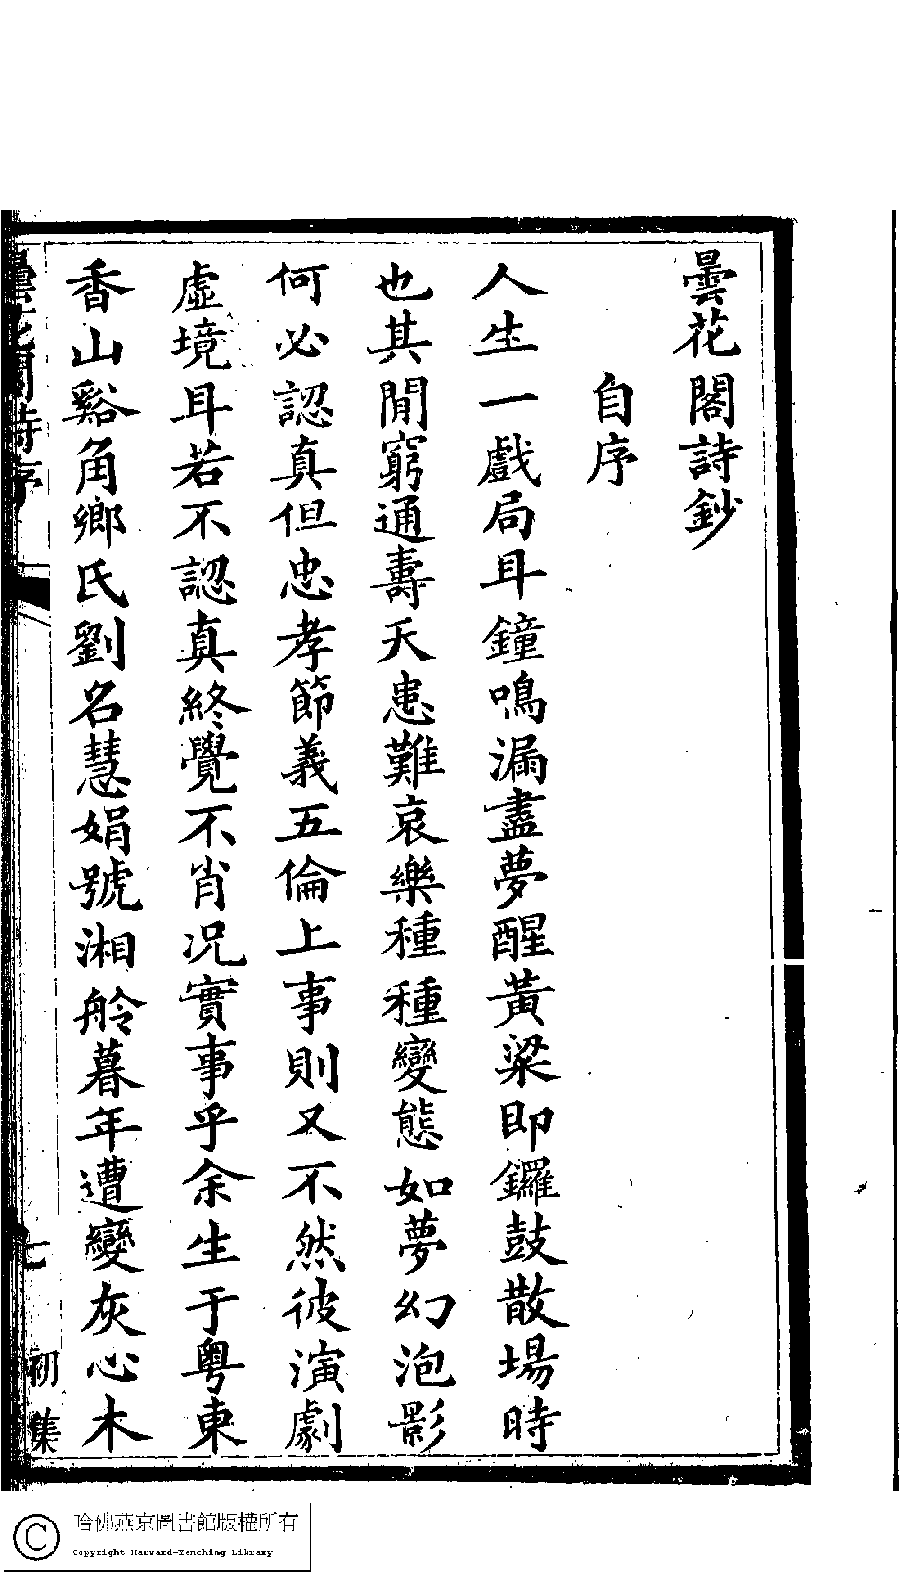 曇花閣詩鈔
自序
人生一戲局耳鐘鳴漏盡夢醒黃粱即鑼鼓散場時
也其閒窮通壽夭患難哀樂種種變態如夢幻泡影
何必認真但忠孝節義五倫上事則又不然彼演劇
虛境耳若不認真終覺不肖况實事乎余生于粤東
香山谿角鄉氏劉名慧娟號湘舲暮年遭變灰心木
曇花閣詩序
七
初集
哈佛燕京圖書館版權所有
Copyright Harvard-Yenching Library